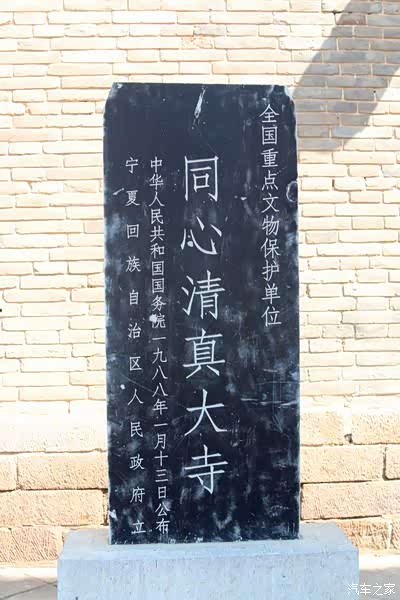 全国重点文物保护单位
同心清真大寺
中华人民共和国国务院一九八八年一月十三日公布
宁夏回族自治区人民政府立
汽车之家